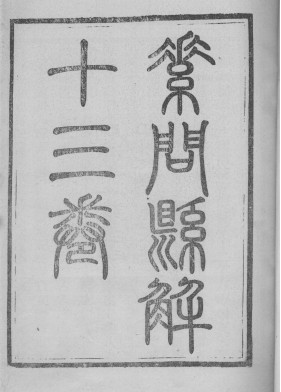 素問縣解
十三卷